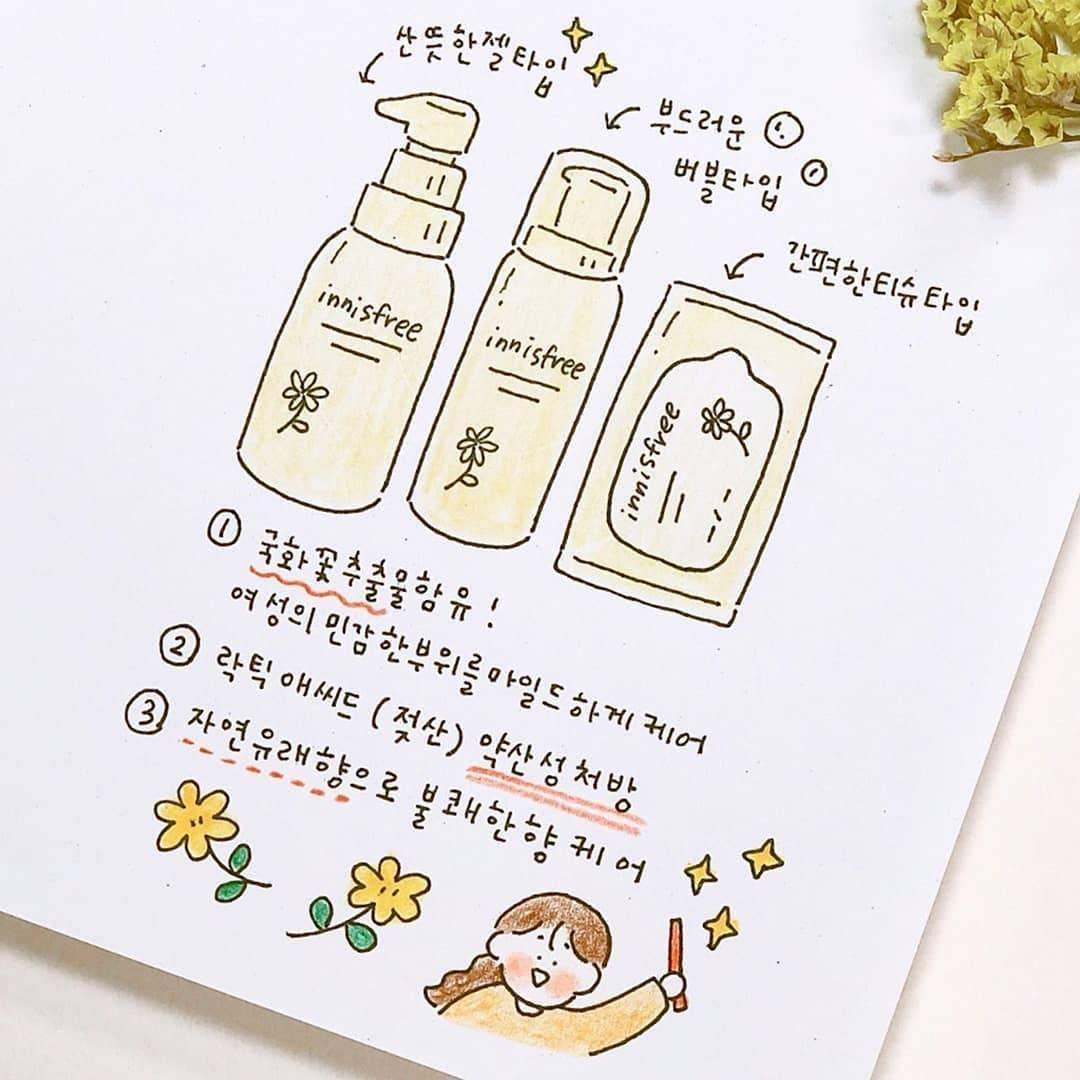 산뜻한젤타입
부드러운
버블타입
간편한티슈타입
innisfree
innisfree
innisfree
① 국화꽃추출물함유!
여성의 민감한부위를마일드하게케어
② 락틱애씨드(젖산) 약산성처방
③ 자연유래향으로 불쾌한향케어